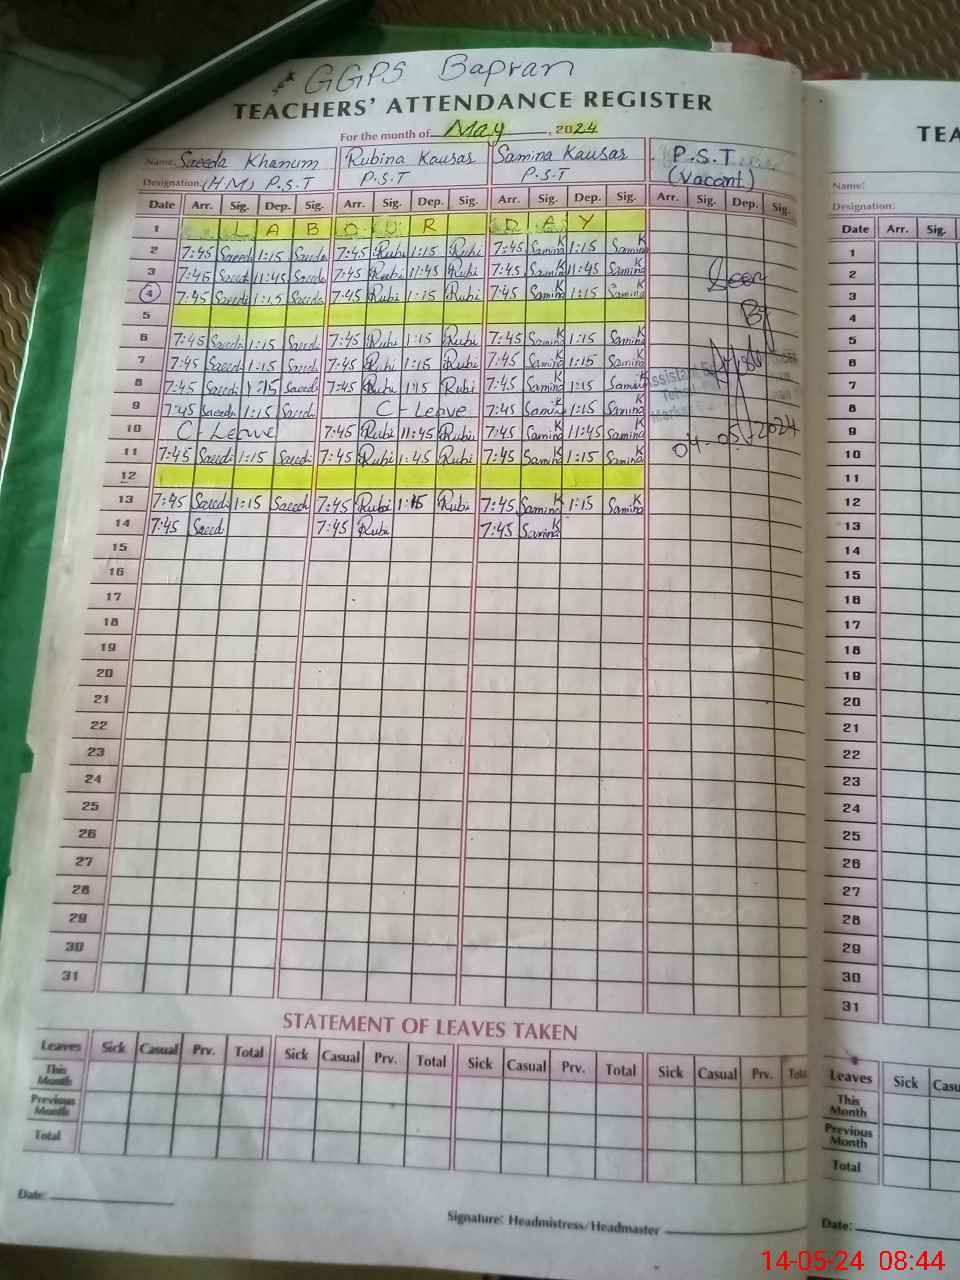 GGPS Bapran
TEACHERS' ATTENDANCE REGISTER
For the month of May, 2024
Name: Saeeda Khanum Rubina Kausar Samina Kausar P.S.T
Designation: (HM) P.S.T P.S.T P.S.T (Vacant)
Date Arr. Sig. Dep. Sig. Arr. Sig. Dep. Sig. Arr. Sig. Dep. Sig. Arr. Sig. Dep. Sig.
1 LABOUR DAY
2 7:45 Saeed 1:15 Saeeda 7:45 Rubi 1:15 Rubi 7:45 Samina K 1:15 Samina K
3 7:45 Saeed 11:45 Saeeda 7:45 Rubi 11:45 Rubi 7:45 Samina K 11:45 Samina K
4 7:45 Saeeda 1:15 Saeeda 7:45 Rubi 1:15 Rubi 7:45 Samina K 1:15 Samina K
5
6 7:45 Saeed 1:15 Saeed 7:45 Rubi 1:15 Rubi 7:45 Samina K 1:15 Samina K
7 7:45 Saeed 1:15 Saeed 7:45 Rubi 1:15 Rubi 7:45 Samina K 1:15 Samina K
8 7:45 Saeeda 1:15 Saeeda 7:45 Rubi 1:15 Rubi 7:45 Samina K 1:15 Samina
9 7:45 Saeeda 1:15 Saeeda C-Leave 7:45 Samina K 1:15 Samina K
10 C-Leave 7:45 Rubi 11:45 Rubi 7:45 Samina K 11:45 Samina K
11 7:45 Saeed 1:15 Saeed 7:45 Rubi 1:45 Rubi 7:45 Samina K 1:15 Samina K
12
13 7:45 Saeed 1:15 Saeed 7:45 Rubi 1:15 Rubi 7:45 Samina K 1:15 Samina K
14 7:45 Saeed 7:45 Rubi 7:45 Samina K
15
16
17
18
19
20
21
22
23
24
25
26
27
28
29
30
31
Seen
By
Assistant
04-05-2024
STATEMENT OF LEAVES TAKEN
Leaves Sick Casual Prv. Total Sick Casual Prv. Total Sick Casual Prv. Total Sick Casual Prv. Total
This Month
Previous Month
Total
Date:
Signature: Headmistress/Headmaster
TEA
Name:
Designation:
Date Arr. Sig.
1
2
3
4
5
6
7
8
9
10
11
12
13
14
15
16
17
18
19
20
21
22
23
24
25
26
27
28
29
30
31
Leaves Sick Casu
This Month
Previous Month
Total
Date:
14-05-24 08:44